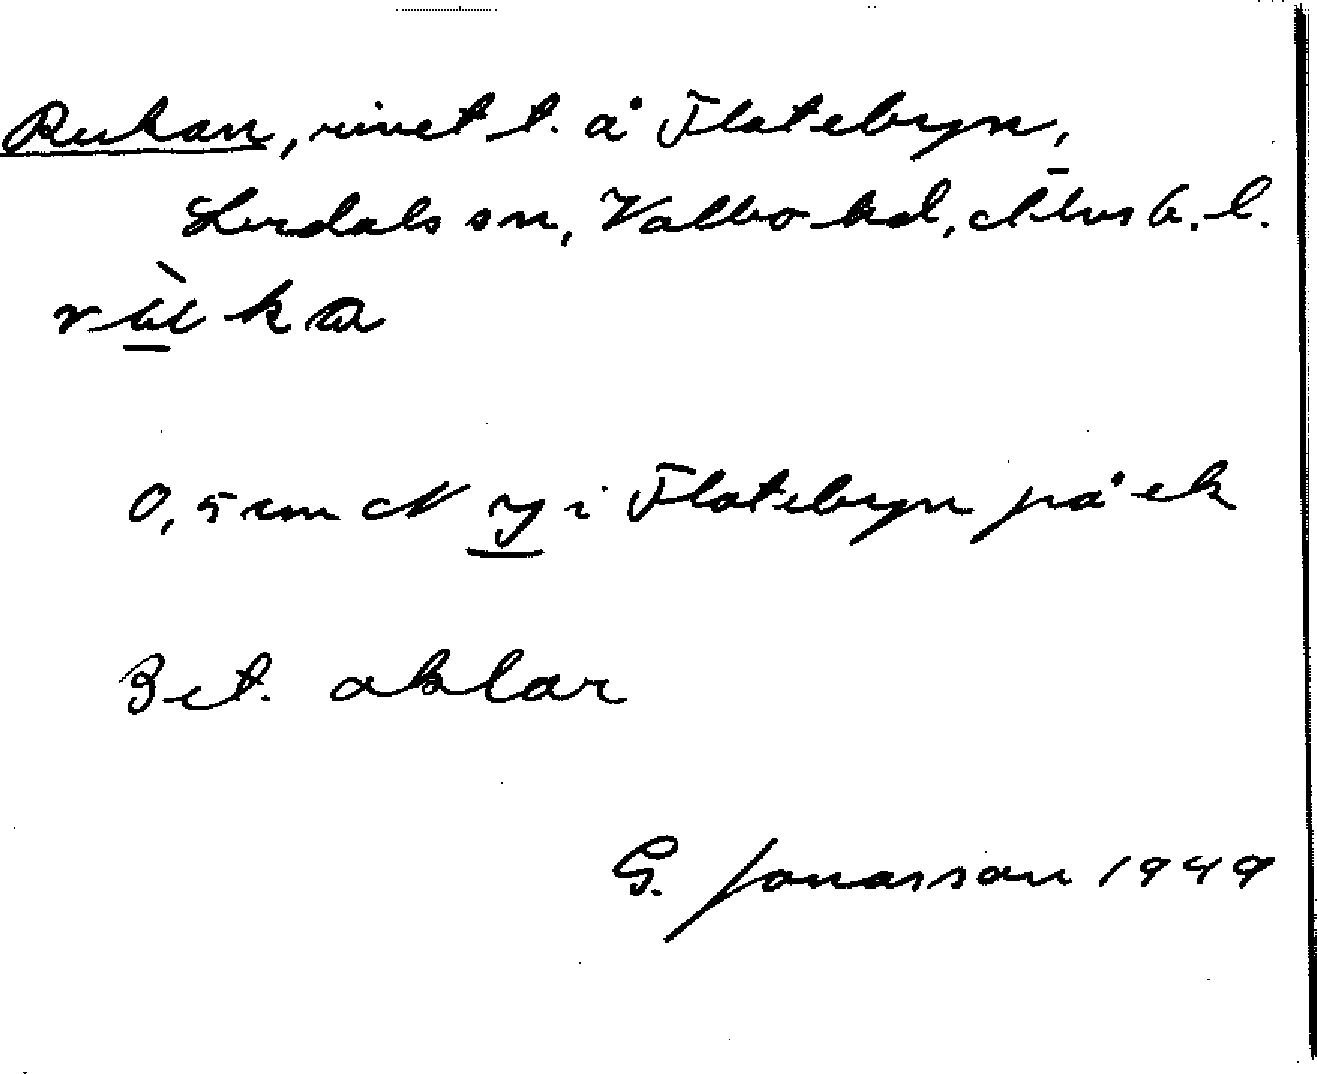 Rukan, rivet t. å Flatebyn,
Lerdals sn, Valbo hd, Älvsb. l.
rùka
0,5 cm N y i Flatebyn på ek
Bet. oklar
G. Jonasson 1949